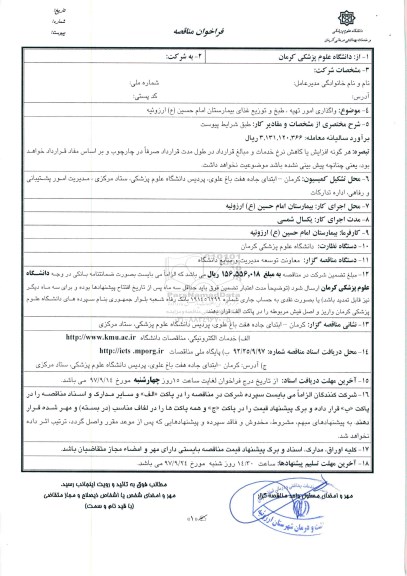 تاریخ:
شماره:
پیوست:
دانشگاه علوم پزشکی
و خدمات بهداشتی درمانی کرمان
فراخوان مناقصه
۱- از: دانشگاه علوم پزشکی کرمان
۲- به شرکت:
۳- مشخصات شرکت:
نام و نام خانوادگی مدیرعامل:
شماره ملی:
آدرس:
کد پستی:
۴- موضوع: واگذاری امور تهیه ، طبخ و توزیع غذای بیمارستان امام حسین (ع) ارزوئیه
۵- شرح مختصری از مشخصات و مقادیر کار: طبق شرایط پیوست
برآورد سالیانه معامله: ۳،۱۳۱،۱۲۰،۳۶۶ ریال
تبصره: هر گونه افزایش یا کاهش نرخ خدمات و مبالغ قرارداد در طول مدت قرارداد صرفاً در چارچوب و بر اساس مفاد قرارداد خواهد
بود، یعنی چنانچه پیش بینی نشده باشد موضوعیت نخواهد داشت.
۶- محل تشکیل کمیسیون: کرمان – ابتدای جاده هفت باغ علوی، پردیس دانشگاه علوم پزشکی، ستاد مرکزی ، مدیریت امور پشتیبانی
و رفاهی، اداره تدارکات
۷- محل اجرای کار: بیمارستان امام حسین (ع) ارزوئیه
۸- مدت اجرای کار: یکسال شمسی
۹- کارفرما: بیمارستان امام حسین (ع) ارزوئیه
۱۰- دستگاه نظارت: دانشگاه علوم پزشکی کرمان
۱۱- دستگاه مناقصه گزار: معاونت توسعه مدیریت و منابع دانشگاه
۱۲- مبلغ تضمین شرکت در مناقصه به مبلغ ۱۵۶،۵۵۶،۰۱۸ ریال می باشد که الزاماً می بایست بصورت ضمانتنامه بانکی در وجه دانشگاه
علوم پزشکی کرمان ارسال شود (توضیحاً مدت اعتبار تضمین فوق باید حداقل سه ماه پس از تاریخ افتتاح پیشنهادها بوده و برای سه ماه دیگر
نیز قابل تمدید باشد) یا بصورت نقدی به حساب جاری شماره بانک رفاه شعبه بلوار جمهوری بنام سپرده های دانشگاه علوم
پزشکی کرمان واریز و اصل فیش مربوطه را در پاکت الف قرار دهند
۱۳- نشانی مناقصه گزار: کرمان – ابتدای جاده هفت باغ علوی، پردیس دانشگاه علوم پزشکی، ستاد مرکزی
الف) خدمات الکترونیکی، مناقصات دانشگاه http://www.kmu.ac.ir
۱۴- محل دریافت اسناد مناقصه شماره: ۹۳/۳۵/۹/۹۷ ب) پایگاه ملی مناقصات http://iets .mporg.ir
ج) آدرس: کرمان –ابتدای جاده هفت باغ علوی، پردیس دانشگاه علوم پزشکی، ستاد مرکزی
۱۵- آخرین مهلت دریافت اسناد: از تاریخ درج فراخوان لغایت ساعت ۱۵روز چهارشنبه مورخ ۹۷/۹/۱۴ می باشد.
۱۶- شرکت کنندگان الزاماً می بایست سپرده شرکت در مناقصه را در پاکت «الف» و سایر مدارک و اسناد مناقصه را در
پاکت «ب» قرار داده و برگ پیشنهاد قیمت را در پاکت «ج» و همه پاکت ها را در لفاف مناسب (در بسته) و مهر شده قرار
دهند. به پیشنهادهای مبهم، مشروط، مخدوش و فاقد سپرده و پیشنهادهایی که پس از موعد مقرر واصل گردد، ترتیب اثر داده
نخواهد شد.
۱۷- کلیه اوراق، مدارک، اسناد و برگ پیشنهاد قیمت مناقصه بایستی دارای مهر و امضاء مجاز متقاضیان باشد.
۱۸- آخرین مهلت تسلیم پیشنهادها: ساعت ۱۴:۳۰ روز شنبه مورخ ۹۷/۹/۲۴ می باشد.
مطالب فوق به تائید و رویت اینجانب رسید.
مهر و امضای مسئول واحد مناقصه گزار
مهر و امضای شخص یا اشخاص ذیصلاح و مجاز متقاضی
(با قید نام و سمت)